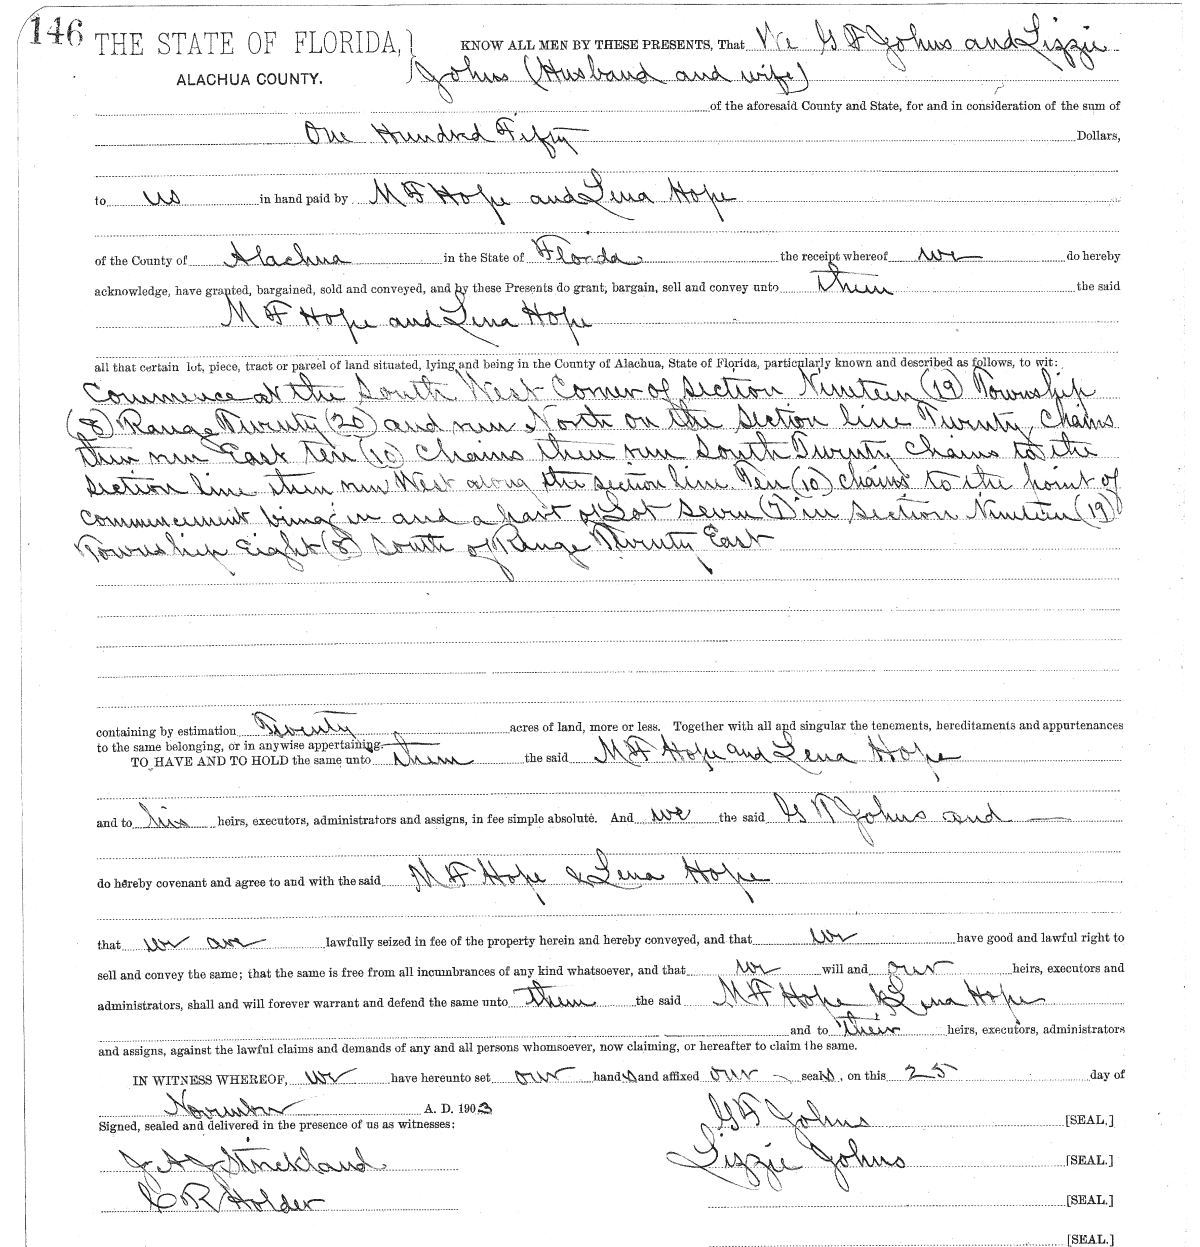 146 THE STATE OF FLORIDA, KNOW ALL MEN BY THESE PRESENTS, That We G F Johns and Lizzie
ALACHUA COUNTY. Johns (Husband and wife)
of the aforesaid County and State, for and in consideration of the sum of
One Hundred Fifty Dollars,
to us in hand paid by M F Hope and Lena Hope
of the County of Alachua in the State of Florida the receipt whereof we do hereby
acknowledge, have granted, bargained, sold and conveyed, and by these Presents do grant, bargain, sell and convey unto them the said
M F Hope and Lena Hope
all that certain lot, piece, tract or parcel of land situated, lying and being in the County of Alachua, State of Florida, particularly known and described as follows, to wit:
Commence at the South West Corner of Section Nineteen (19) Township
(8) Range Twenty (20) and run North on the section line Twenty Chains
then run East Ten (10) Chains then run South Twenty Chains to the
section line then run West along the section line Ten (10) chains to the point of
commencement being in and a part of Lot Seven (7) in Section Nineteen (19)
Township Eight (8) South of Range Twenty East
containing by estimation Twenty acres of land, more or less. Together with all and singular the tenements, hereditaments and appurtenances
to the same belonging, or in anywise appertaining.
TO HAVE AND TO HOLD the same unto them the said M F Hope and Lena Hope
and to his heirs, executors, administrators and assigns, in fee simple absolute. And we the said G F Johns and —
do hereby covenant and agree to and with the said M F Hope & Lena Hope
that we are lawfully seized in fee of the property herein and hereby conveyed, and that we have good and lawful right to
sell and convey the same; that the same is free from all incumbrances of any kind whatsoever, and that we will and our heirs, executors and
administrators, shall and will forever warrant and defend the same unto them the said M F Hope & Lena Hope
and to their heirs, executors, administrators
and assigns, against the lawful claims and demands of any and all persons whomsoever, now claiming, or hereafter to claim the same.
IN WITNESS WHEREOF, we have hereunto set our hands and affixed our seals, on this 25 day of
November A. D. 1903 G F Johns [SEAL.]
Signed, sealed and delivered in the presence of us as witnesses:
J A J Strickland Lizzie Johns [SEAL.]
C R Holder [SEAL.]
[SEAL.]